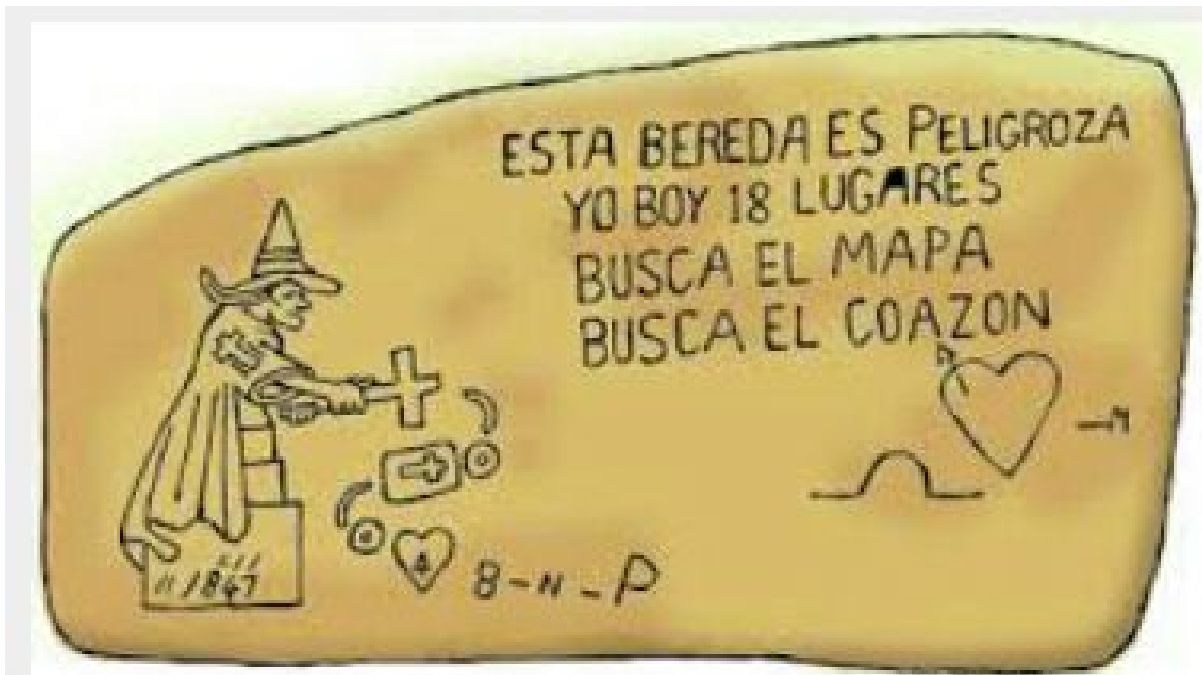 ESTA BEREDA ES PELIGROZA
YO BOY 18 LUGARES
BUSCA EL MAPA
BUSCA EL COAZON
1847
8-N-P